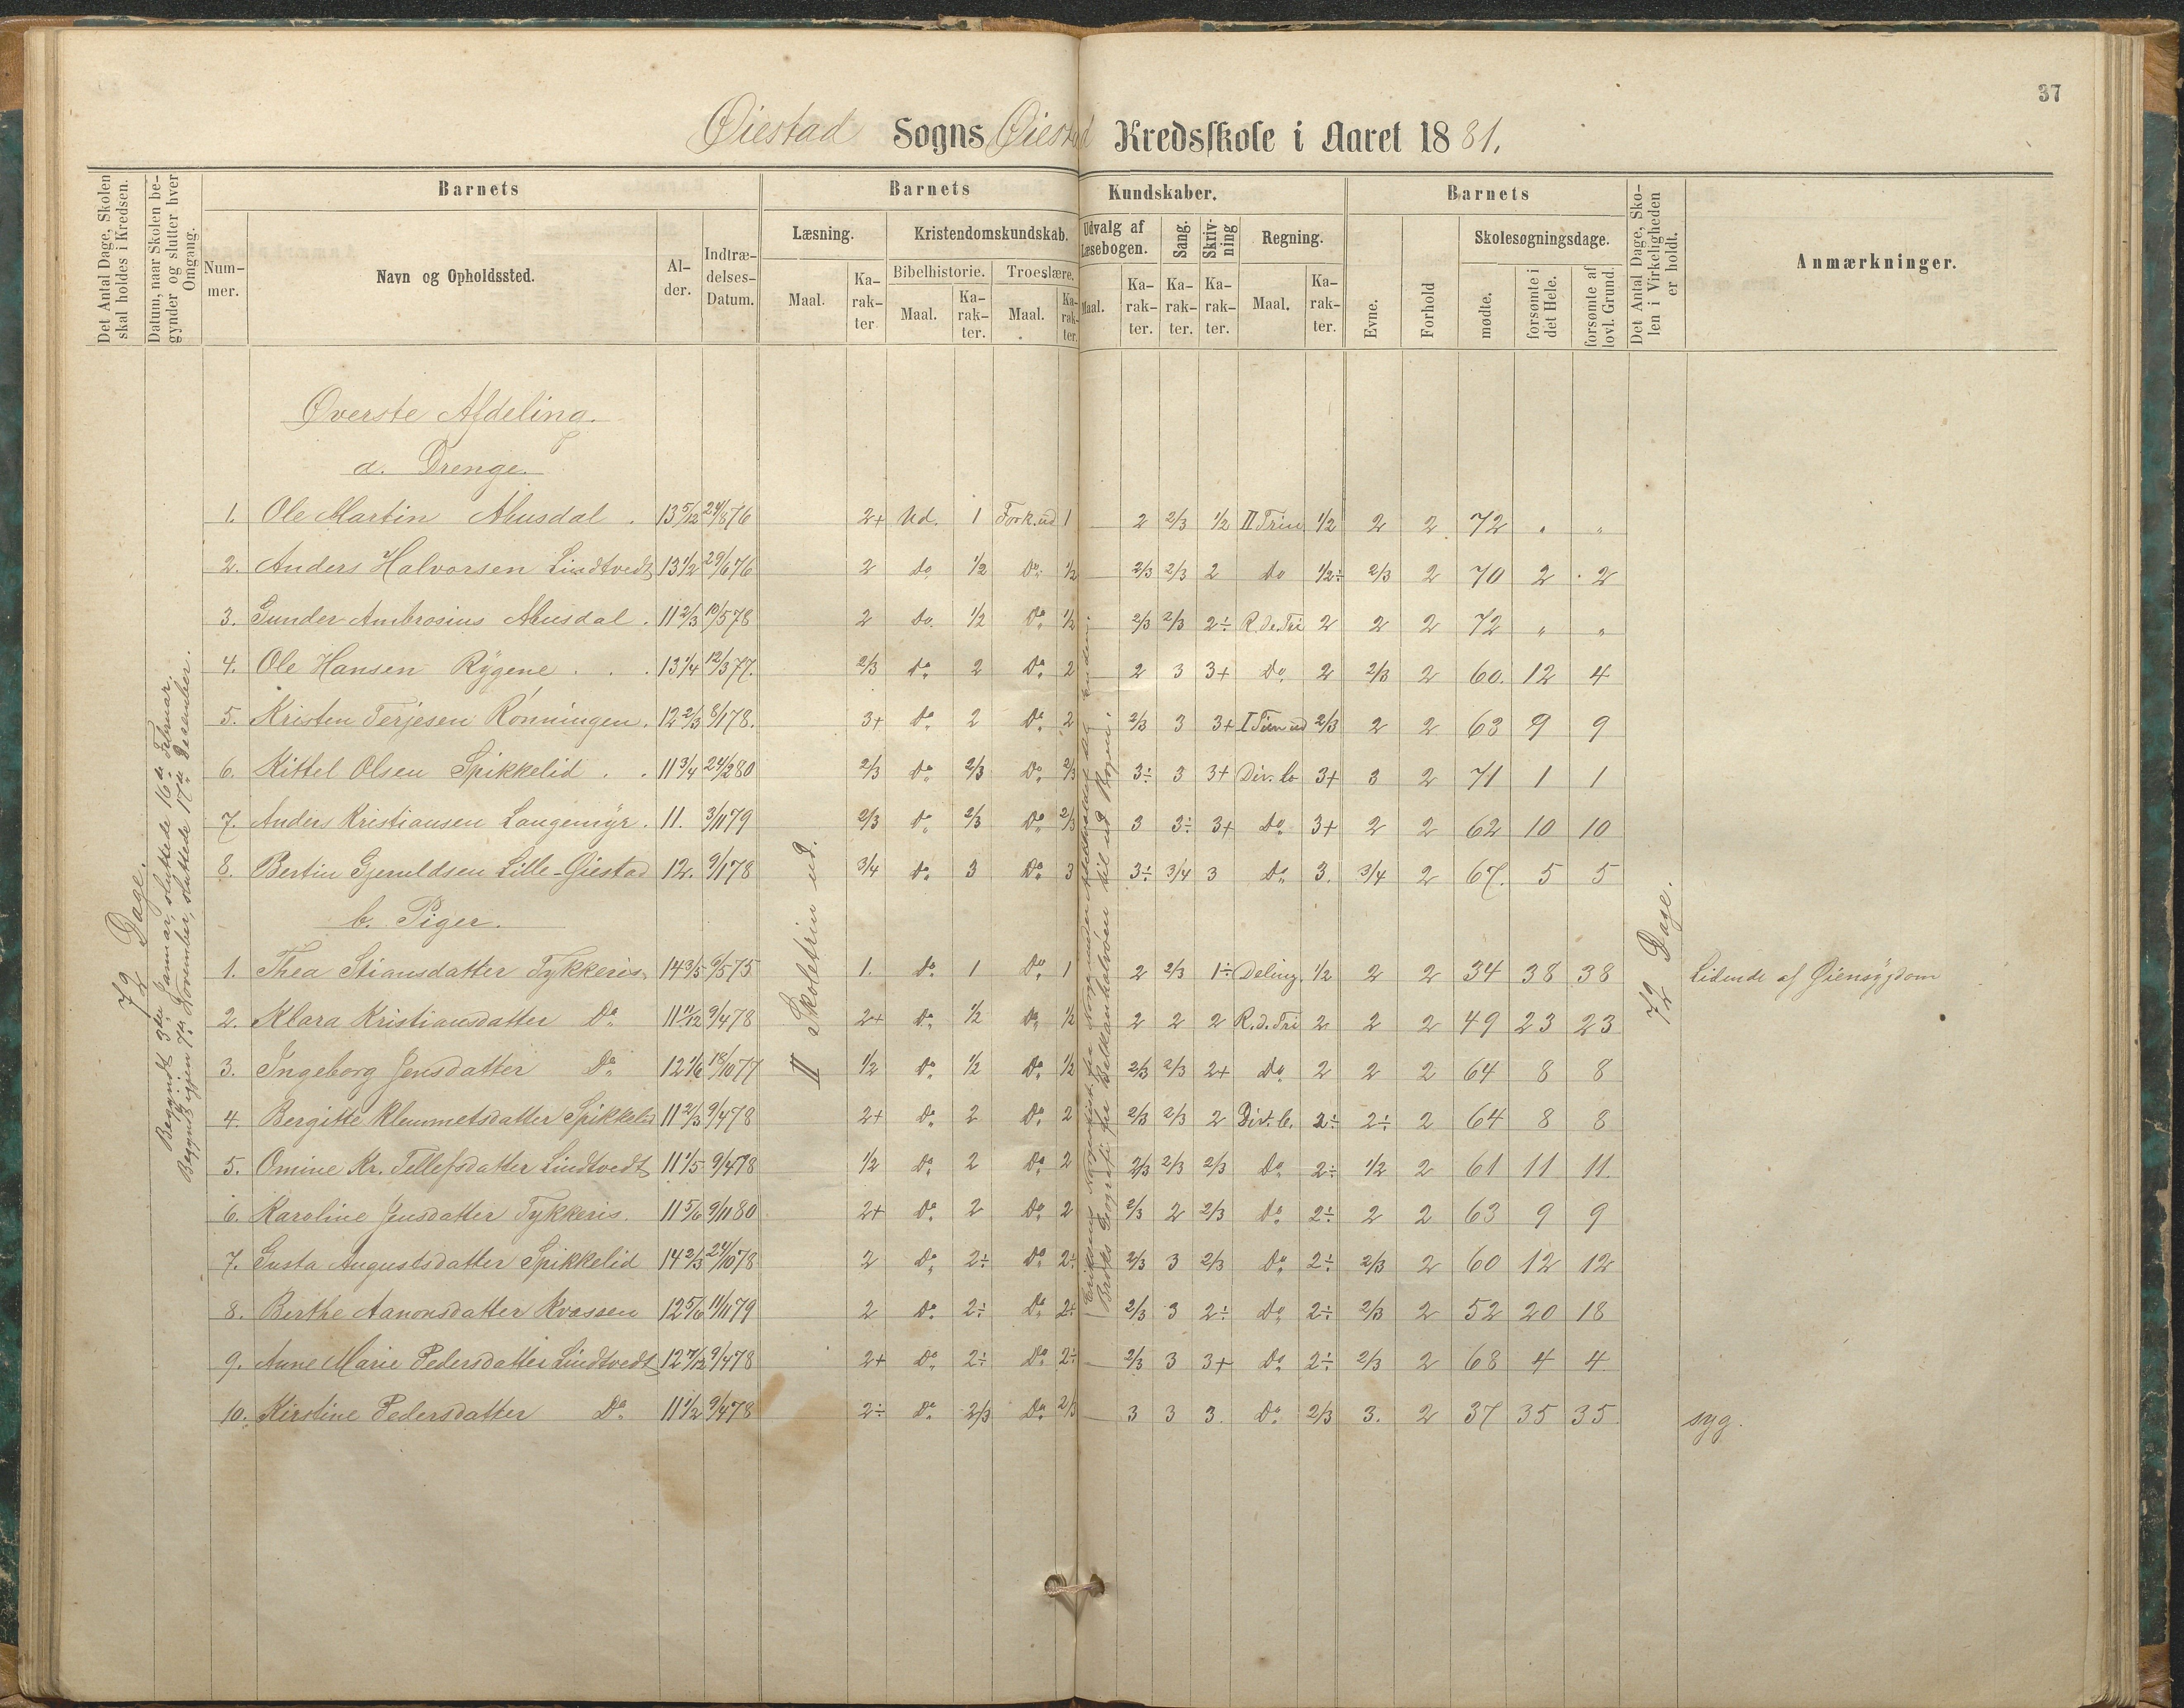 37
Øiestad Sogns Øiestad Kredsskole i Aaret 1881.
Det Antal Dage, Skolen skal holdes i Kredsen.
Datum, naar Skolen begynder og slutter hver Omgang.
Barnets
Nummer.
Navn og Opholdssted.
Alder.
Indtrædelses-Datum.
Barnets Kundskaber.
Læsning.
Maal.
Karakter
Kristendomskundskab.
Bibelhistorie.
Maal.
Karakter.
Troeslære.
Maal.
Karakter.
Udvalg af Læsebogen.
Maal.
Karakter.
Sang.
Karakter.
Skrivning
Karakter.
Regning.
Maal.
Karakter.
Barnets
Evne.
Forhold
Skolesøgningsdage.
mødte.
forsømte i det Hele.
forsømte af lovl. Grund.
Det Antal Dage, Skolen i Virkeligheden er holdt.
Anmærkninger.
72 Dage.
Begyndt 3die Januar, sluttede 16de Februar.
Begyndt igjen 7de November, sluttede 17de Desember.
II Skoletrin ud.
72 Dage.
Øverste Afdeling.
a. Drenge.
1. Ole Martin Ahusdal . 13 5/12 24/8 76 2+ Ud. 1 Fork. ud 1 — 2 2/3 1/2 II Trin 1/2 2 2 72 „ „
2. Anders Halvorsen Lindtvedt 13 1/2 29/6 76 2 Do 1/2 Do 1/2 — 2/3 2/3 2 Do 1/2÷ 2/3 2 70 2 2
3. Gunder Ambrosius Ahusdal . 11 2/3 10/5 78 2 Do. 1/2 Do 1/2 2/3 2/3 2÷ R.de.Tri 2 2 2 72 „ „
4. Ole Hansen Rygene . . . 13 1/4 12/3 77. 2/3 Do 2 Do 2 2 3 3+ Do 2 2/3 2 60. 12 4
5. Kristen Terjesen Rønningen. 12 2/3 8/1 78. 3+ Do 2 Do 2 2/3 3 3+ I Trin ud 2/3 2 2 63 9 9
6. Kittel Olsen Spikkelid . . 11 3/4 24/2 80 2/3 Do 2/3 Do 2/3 3÷ 3 3+ Div. b 3+ 3 2 71 1 1
7. Anders Kristiansen Langemyr. 11. 3/11 79 2/3 Do 2/3 Do 2/3 3 3÷ 3+ Do 3+ 2 2 62 10 10
8. Bertin Gjeruldsen Lille-Øiestad 12. 9/1 78 3/4 Do 3 Do 3 3÷ 3/4 3 Do 3. 3/4 2 67. 5 5
b. Piger.
1. Thea Stiansdatter Tykkeris 14 3/5 9/5 75 1. Do 1 Do 1 2 2/3 1÷ Deling 1/2 2 2 34 38 38 Lidende af Øiensygdom
2. Klara Kristiansdatter Do 11 11/12 9/4 78 2+ Do 1/2 Do 1/2 2 2 2 R.d.Tri 2 2 2 49 23 23
3. Ingeborg Jensdatter Do 12 1/6 18/10 77 1/2 Do 1/2 Do 1/2 2/3 2/3 2+ Do 2 2 2 64 8 8
4. Bergitte Klemmetsdatter Spikkelid 11 2/3 9/4 78 2+ Do 2 Do 2 2/3 2/3 2 Div. b. 2÷ 2÷ 2 64 8 8
5. Omine Kr. Tellefsdatter Lindtvedt 11 1/5 9/4 78 1/2 Do 2 Do 2 2/3 2/3 2/3 Do 2÷ 1/2 2 61 11 11.
6. Karoline Jensdatter Tykkeris. 11 5/6 9/11 80 2+ Do 2 Do 2 2/3 2 2/3 Do 2÷ 2 2 63 9 9
7. Gusta Augustsdatter Spikkelid 14 2/3 24/10 78 2 Do 2÷ Do 2÷ 2/3 3 2/3 Do 2÷ 2/3 2 60 12 12
8. Birthe Aanonsdatter Kvassen 12 5/6 11/11 79 2 Do 2÷ Do 2÷ 2/3 3 2÷ Do 2÷ 2/3 2 52 20 18
9. Anne Marie Pedersdatter Lindtvedt 12 7/12 9/4 78 2+ Do 2÷ Do 2÷ — 2/3 3 3+ Do 2÷ 2/3 2 68 4 4
10. Kirstine Pedersdatter Do 11 1/2 9/4 78 2÷ Do 2/3 Do 2/3 — 3 3 3. Do 2/3 3. 2 37 35 35. syg.